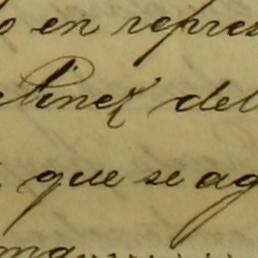 o en repres
tinez del
que se ag